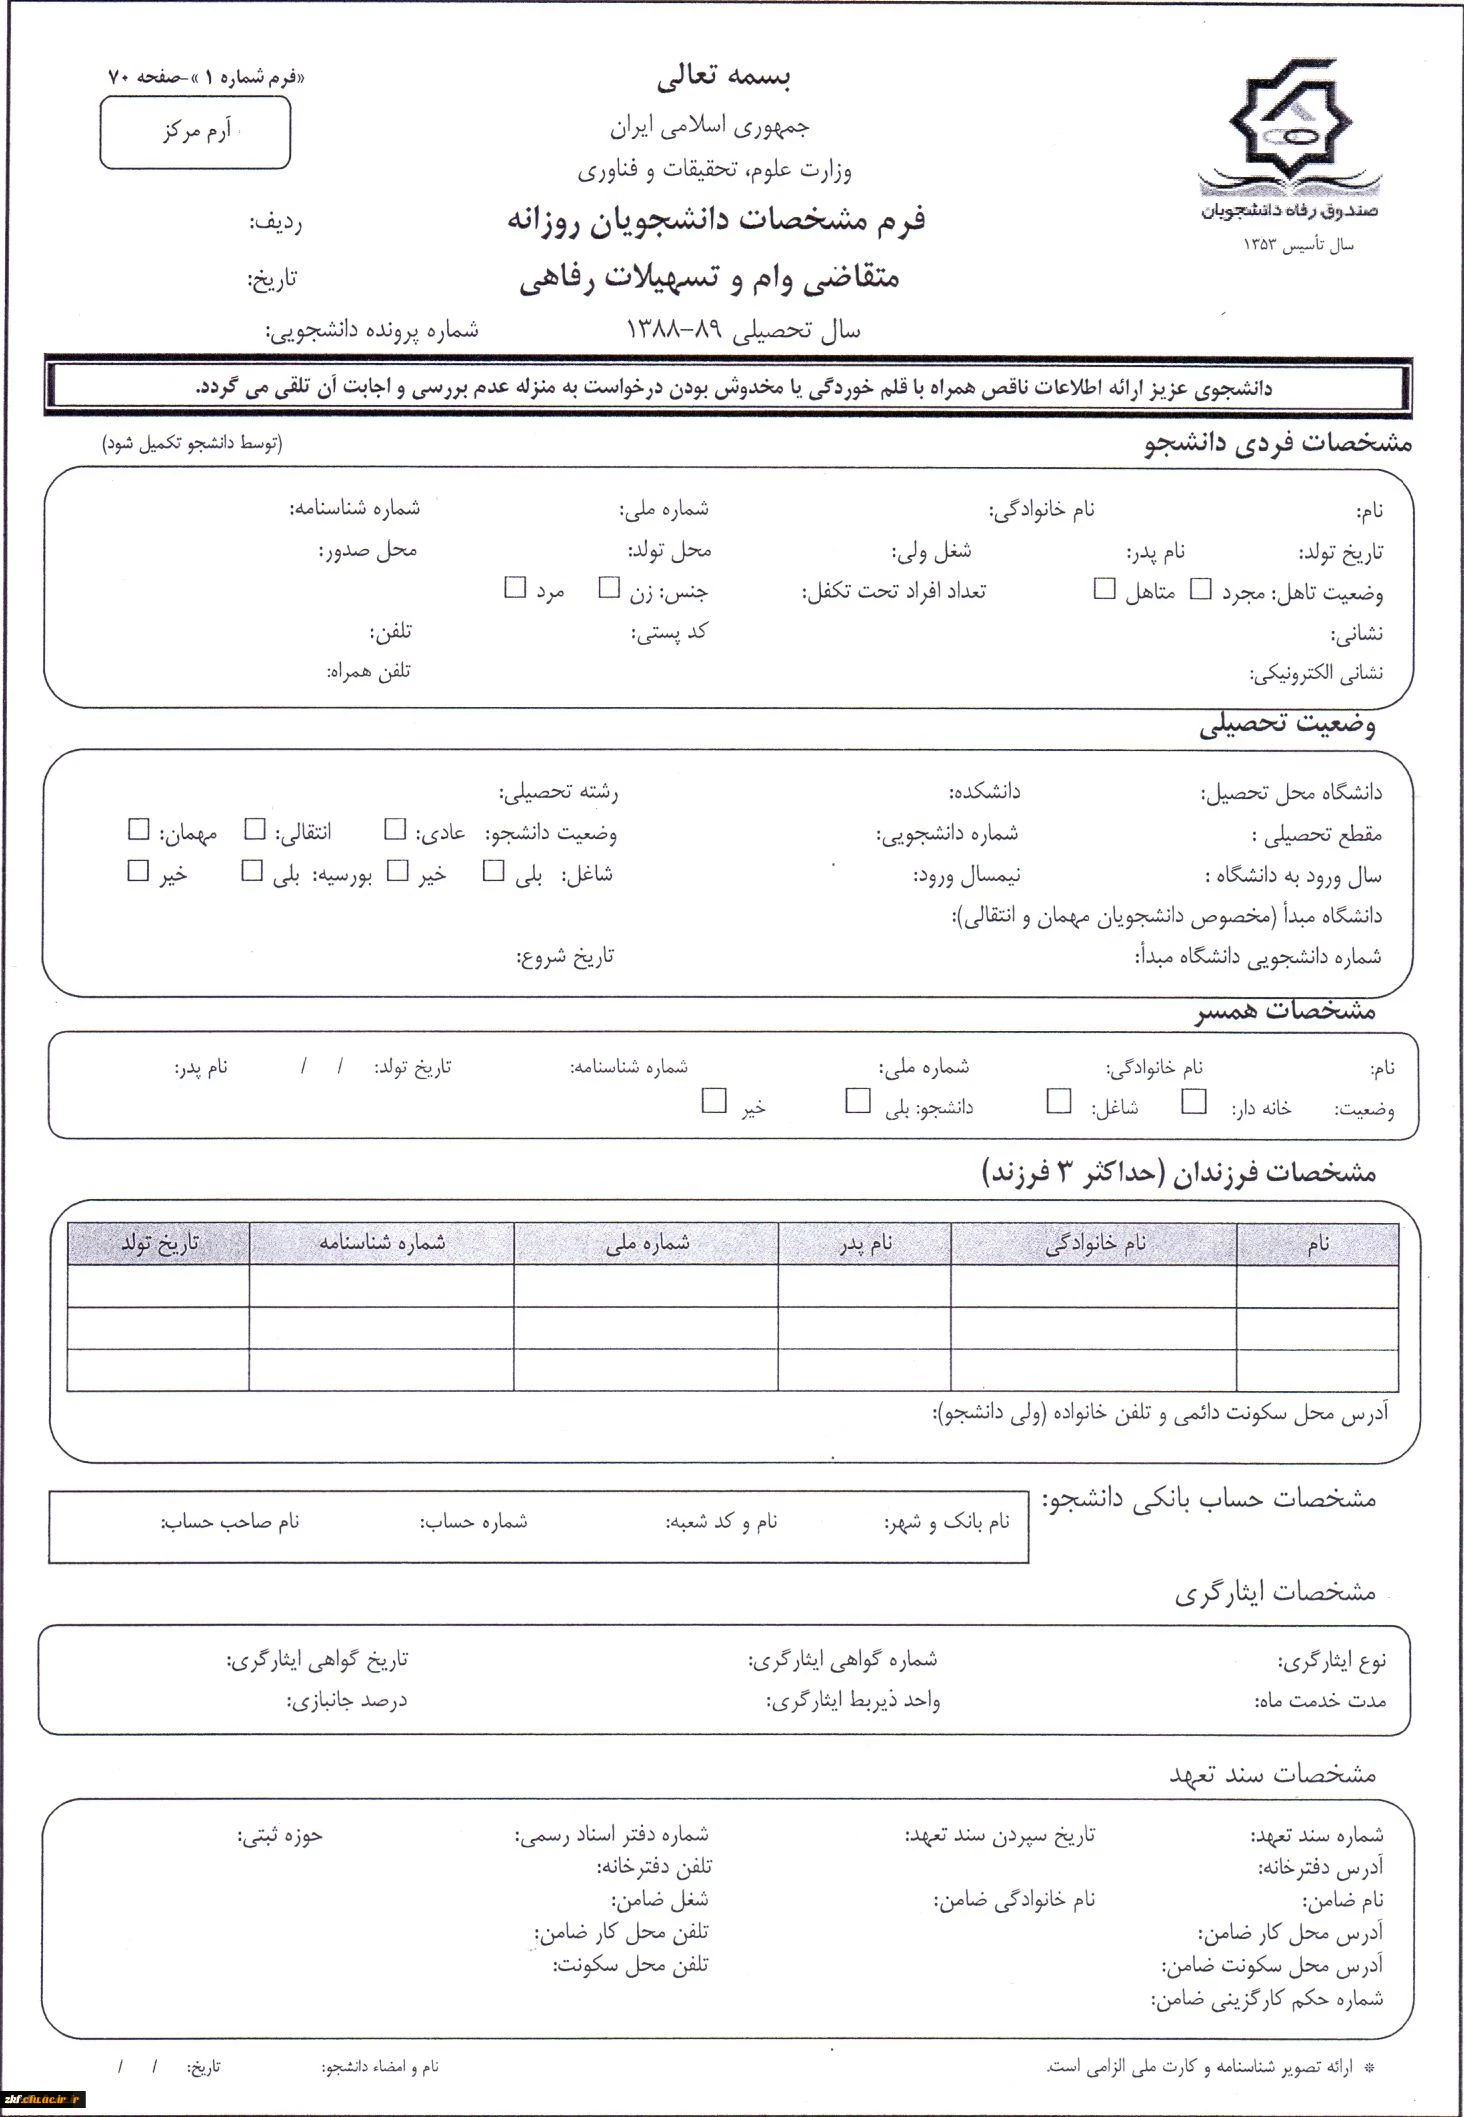 بسمه تعالی
«فرم شماره ۱»-صفحه ۷۰
جمهوری اسلامی ایران
آرم مرکز
وزارت علوم، تحقیقات و فناوری
صندوق رفاه دانشجویان
فرم مشخصات دانشجویان روزانه
ردیف:
سال تأسیس ۱۳۵۳
متقاضی وام و تسهیلات رفاهی
تاریخ:
سال تحصیلی ۸۹-۱۳۸۸
شماره پرونده دانشجویی:
دانشجوی عزیز ارائه اطلاعات ناقص همراه با قلم خوردگی یا مخدوش بودن درخواست به منزله عدم بررسی و اجابت آن تلقی می گردد.
مشخصات فردی دانشجو (توسط دانشجو تکمیل شود)
نام: نام خانوادگی: شماره ملی: شماره شناسنامه:
تاریخ تولد: نام پدر: شغل ولی: محل تولد: محل صدور:
وضعیت تاهل: مجرد □ متاهل □ تعداد افراد تحت تکفل: جنس: زن □ مرد □
نشانی: کد پستی: تلفن:
نشانی الکترونیکی: تلفن همراه:
وضعیت تحصیلی
دانشگاه محل تحصیل: دانشکده: رشته تحصیلی:
مقطع تحصیلی : شماره دانشجویی: وضعیت دانشجو: عادی: □ انتقالی: □ مهمان: □
سال ورود به دانشگاه : نیمسال ورود: شاغل: بلی □ خیر □ بورسیه: بلی □ خیر □
دانشگاه مبدأ (مخصوص دانشجویان مهمان و انتقالی):
شماره دانشجویی دانشگاه مبدأ: تاریخ شروع:
مشخصات همسر
نام: نام خانوادگی: شماره ملی: شماره شناسنامه: تاریخ تولد: / / نام پدر:
وضعیت: خانه دار: □ شاغل: □ دانشجو: بلی □ خیر □
مشخصات فرزندان (حداکثر ۳ فرزند)
نام نام خانوادگی نام پدر شماره ملی شماره شناسنامه تاریخ تولد
آدرس محل سکونت دائمی و تلفن خانواده (ولی دانشجو):
مشخصات حساب بانکی دانشجو:
نام بانک و شهر: نام و کد شعبه: شماره حساب: نام صاحب حساب:
مشخصات ایثارگری
نوع ایثارگری: شماره گواهی ایثارگری: تاریخ گواهی ایثارگری:
مدت خدمت ماه: واحد ذیربط ایثارگری: درصد جانبازی:
مشخصات سند تعهد
شماره سند تعهد: تاریخ سپردن سند تعهد: شماره دفتر اسناد رسمی: حوزه ثبتی:
آدرس دفترخانه: تلفن دفترخانه:
نام ضامن: نام خانوادگی ضامن: شغل ضامن:
آدرس محل کار ضامن: تلفن محل کار ضامن:
آدرس محل سکونت ضامن: تلفن محل سکونت:
شماره حکم کارگزینی ضامن:
* ارائه تصویر شناسنامه و کارت ملی الزامی است. نام و امضاء دانشجو: تاریخ: / /
zkf.cfu.ac.ir